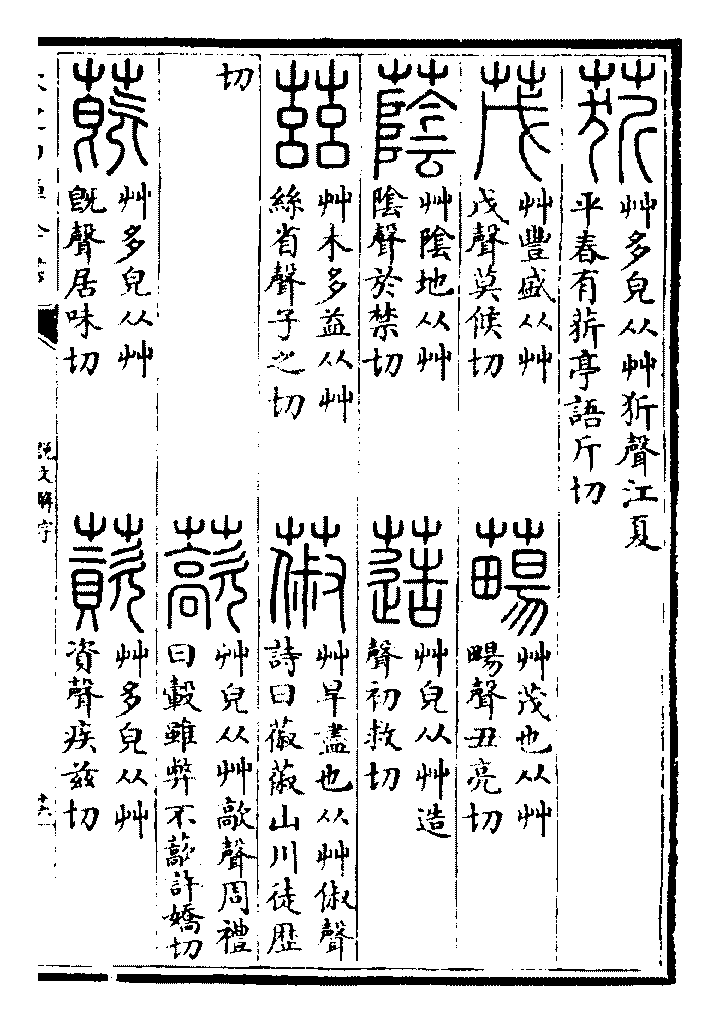 䓄
艸多皃从艸㹞聲江夏
平春有䓄亭語斤切
茂
艸豐盛从艸
戊聲莫候切
艸茂也从艸
畼聲丑亮切
蔭
艸陰地从艸
陰聲於禁切
䔏
艸皃从艸造
聲初救切
茲
艸木多益从艸
絲省聲子之切
艸旱盡也从艸俶聲
詩曰山川徒歴
切
藃
艸皃从艸歊聲周禮
曰轂雖弊不藃許嬌切
蔇
艸多皃从艸
既聲居味切
薋
艸多皃从艸
資聲疾兹切
說文解字